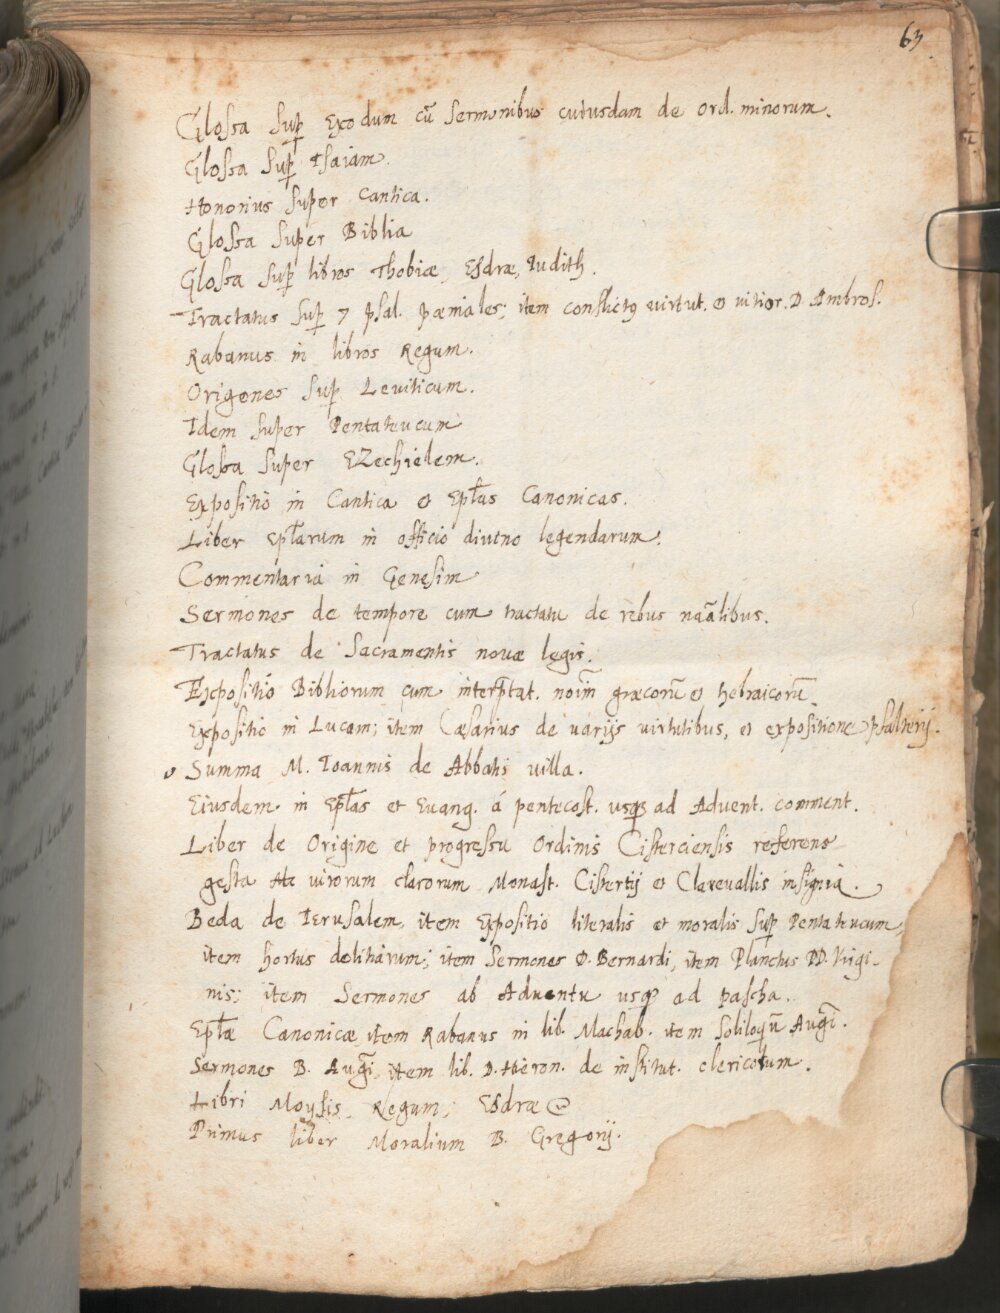 63
Glossa sup Exodum cū sermonibus cuiusdam de ord. minorum.
Glossa sup Isaiam.
Honorius super Cantica.
Glossa super Biblia
Glossa sup libros Thobiæ, Esdræ, Iudith.
Tractatus sup 7 psal. pœniales; item conflictꝰ virtut. et vitior. D. Ambros.
Rabanus in libros Regum.
Origenes sup Leviticum.
Idem super Pentateucum
Glossa super EZechielem.
Expositio in Cantica et Epl̄as Canonicas.
Liber Epl̄arum in officio diurno legendarum.
Commentaria in Genesim
Sermones de tempore cum tractatu de rebus naālibus.
Tractatus de Sacramentis novæ legis.
Expositio Bibliorum cum interp̄tat. noīm græcorū et hebraicorū
Expositio in Lucam; item Cæsarius de varijs virtutibus, et expositione psalterij.
Summa M. Ioannis de Abbatis villa.
Eiusdem in Epl̄as et Euang. á pentecost. usqȝ ad Advent. comment.
Liber de Origine et progressu Ordinis Cisterciensis referens
gesta virorum clarorum Monast. Cistertij et Clarevallis insignia.
Beda de Ierusalem, item Expositio literalis et moralis sup Pentateucum,
item hortus delitiarum; item Sermones D. Bernardi, item Planctus DD. Virgi-
nis; item Sermones ab Adventu usqȝ ad pascha.
Epl̄æ Canonicæ, item Rabanus in lib. Machab. item Soliloquū Augī.
Sermones B. Augī, item lib. D. Hieron. de institut. clericorum.
Libri Moysis, Regum, Esdræ
Primus liber Moralium B. Gregorij.